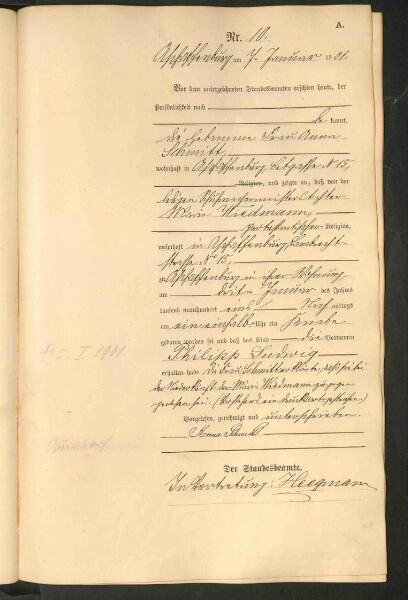 A.
Nr. 10.
Aschaffenburg am 7. Januar 1901.
Vor dem unterzeichneten Standesbeamten erschien heute, der
Persönlichkeit nach
be kannt,
die Hebamme Frau Anna
Schmitt,
wohnhaft in Aschaffenburg N 15,
Religion, und zeigte an, daß von der
ledigen Tochter
Marie Wiedmann,
Religion,
wohnhaft in Aschaffenburg Lamprecht
straße N 15,
zu Aschaffenburg in ihrer Wohnung
am drit ten Januar des Jahres
tausend neunhundert eins Nach mittags
um ein einhalb Uhr ein Knabe
geboren worden sei und daß das Kind die Vornamen
Philipp Ludwig
erhalten habe. Die Frau Schmitt erklärte, daß sie bei
der Niederkunft der Marie Wiedmann zugegen
gewesen sei.
Vorgelesen, genehmigt und unterschrieben.
Anna Schmitt
5. I 1901.
Der Standesbeamte.
In Vertretung: Heegmann